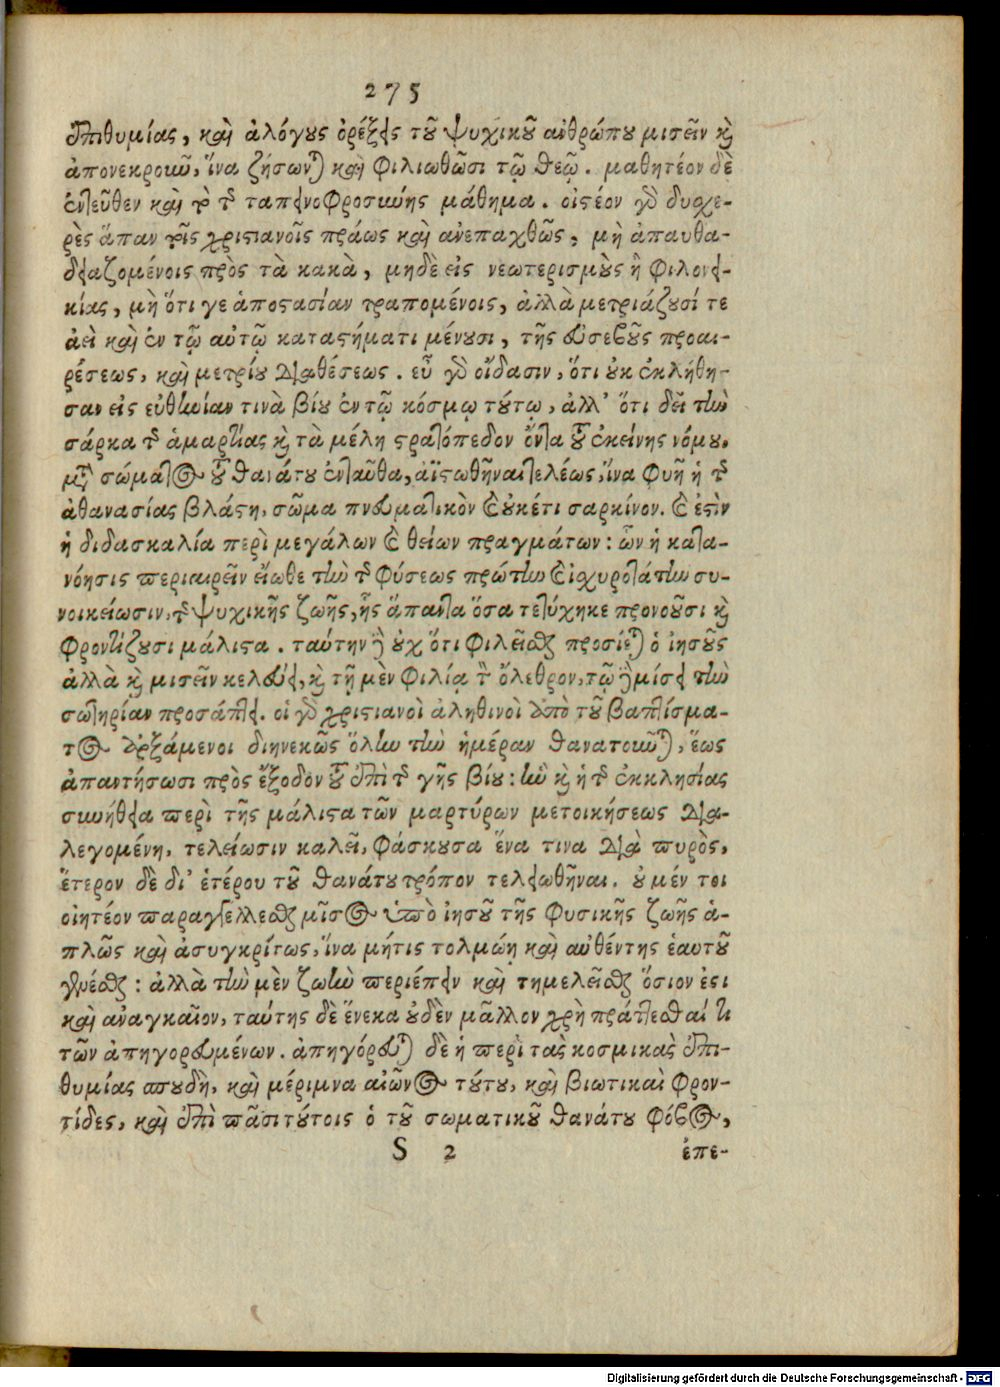 275
ἐπιθυμίας, καὶ ἀλόγους ὀρέξεις τοῦ ψυχικοῦ ἀνθρώπου μισεῖν καὶ
ἀπονεκροῦν, ἵνα ζήσωνται καὶ φιλιωθῶσι τῷ θεῷ. μαθητέον δὲ
ἐντεῦθεν καὶ τὸ τῆς ταπεινοφροσύνης μάθημα. οἰστέον γὰρ δυσχε-
ρὲς ἅπαν τοῖς χριστιανοῖς πράως καὶ ἀνεπαχθῶς, μὴ ἀπαυθα-
δειαζομένοις πρὸς τὰ κακὰ, μηδὲ εἰς νεωτερισμοὺς ἢ φιλονει-
κίας, μὴ ὅτι γε ἀποστασίαν τραπομένοις, ἀλλὰ μετριάζουσί τε
ἀεὶ καὶ ἐν τῷ αὐτῷ καταστήματι μένουσι, τῆς εὐσεβοῦς προαι-
ρέσεως, καὶ μετρίου διαθέσεως. εὖ γὰρ οἴδασιν, ὅτι οὐκ ἐκλήθη-
σαν εἰς εὐθηνίαν τινὰ βίου ἐν τῷ κόσμῳ τούτῳ, ἀλλ’ ὅτι δεῖ τὴν
σάρκα τῆς ἁμαρτίας καὶ τὰ μέλη στρατόπεδον ὄντα τοῦ ἐκείνης νόμου,
μετὰ σώματος τοῦ θανάτου ἐνταῦθα, ἀϊστωθῆναι τελέως, ἵνα φυῇ ἡ τῆς
ἀθανασίας βλάστη, σῶμα πνευματικὸν καὶ οὐκέτι σαρκίνον. καὶ ἐστὶν
ἡ διδασκαλία περὶ μεγάλων καὶ θείων πραγμάτων: ὧν ἡ κατα-
νόησις περιαιρεῖν εἴωθε τὴν τῆς φύσεως πρώτην καὶ ἰσχυροτάτην συ-
νοικείωσιν, τῆς ψυχικῆς ζωῆς, ἧς ἅπαντα ὅσα τετύχηκε προνοοῦσι καὶ
φροντίζουσι μάλιστα. ταύτην δὲ οὐχ ὅτι φιλεῖσθαι προσίεται ὁ ἰησοῦς
ἀλλὰ καὶ μισεῖν κελεύει, καὶ τῇ μὲν φιλίᾳ τὸν ὄλεθρον, τῷ δὲ μίσει τὴν
σωτηρίαν προσάπτει. οἱ γὰρ χριστιανοὶ ἀληθινοὶ ἀπὸ τοῦ βαπτίσμα-
τος ἀρξάμενοι διηνεκῶς ὅλην τὴν ἡμέραν θανατοῦνται, ἕως
ἀπαντήσωσι πρὸς ἔξοδον τοῦ ἐπὶ τῆς γῆς βίου: ἣν καὶ ἡ τῆς ἐκκλησίας
συνήθεια περὶ τῆς μάλιστα τῶν μαρτύρων μετοικήσεως δια-
λεγομένη, τελείωσιν καλεῖ, φάσκουσα ἕνα τινα διὰ πυρὸς,
ἕτερον δὲ δι’ ἑτέρου τοῦ θανάτου τρόπον τελειωθῆναι. οὐ μέν τοι
οἰητέον παραγγέλλεσθαι μῖσος ὑπὸ ἰησοῦ τῆς φυσικῆς ζωῆς ἁ-
πλῶς καὶ ἀσυγκρίτως, ἵνα μήτις τολμῴη καὶ αὐθέντης ἑαυτοῦ
γενέσθαι: ἀλλὰ τὴν μὲν ζωὴν περιέπειν καὶ τημελεῖσθαι ὅσιον ἐστι
καὶ ἀναγκαῖον, ταύτης δὲ ἕνεκα οὐδὲν μᾶλλον χρὴ πράττεσθαί τι
τῶν ἀπηγορευμένων. ἀπηγόρευται δὲ ἡ περὶ τὰς κοσμικὰς ἐπι-
θυμίας σπουδὴ, καὶ μέριμνα αἰῶνος τούτου, καὶ βιωτικαὶ φρον-
τίδες, καὶ ἐπὶ πᾶσι τούτοις ὁ τοῦ σωματικοῦ θανάτου φόβος,
S 2 ἐπε-
Digitalisierung gefördert durch die Deutsche Forschungsgemeinschaft - DFG